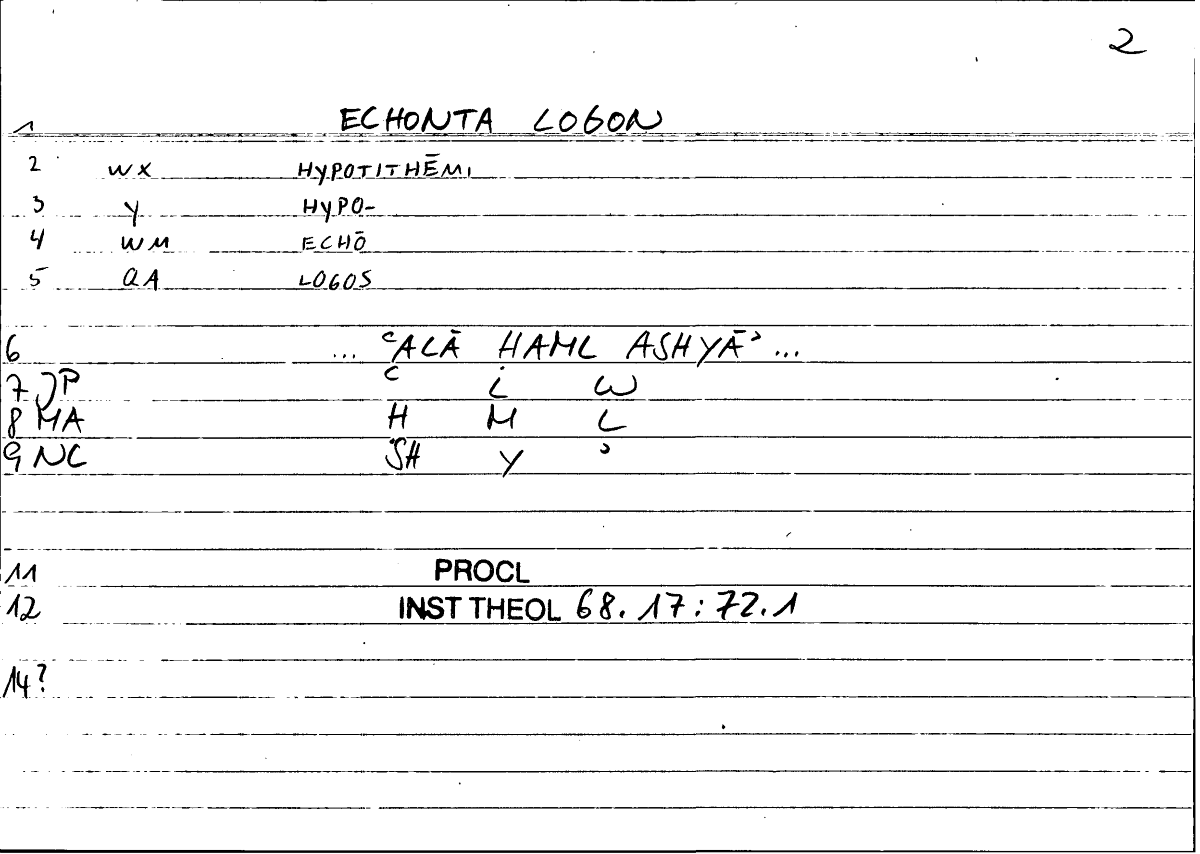 2
1 ECHONTA LOGON
2 WX HYPOTITHĒMI
3 Y HYPO-
4 WM ECHŌ
5 QA LOGOS
6 ... ʿALĀ ḤAML ASHYĀʾ ...
7 JP ʿ L W
8 MA Ḥ M L
9 NC SH Y ʾ
11 PROCL
12 INST THEOL 68.17:72.1
14?